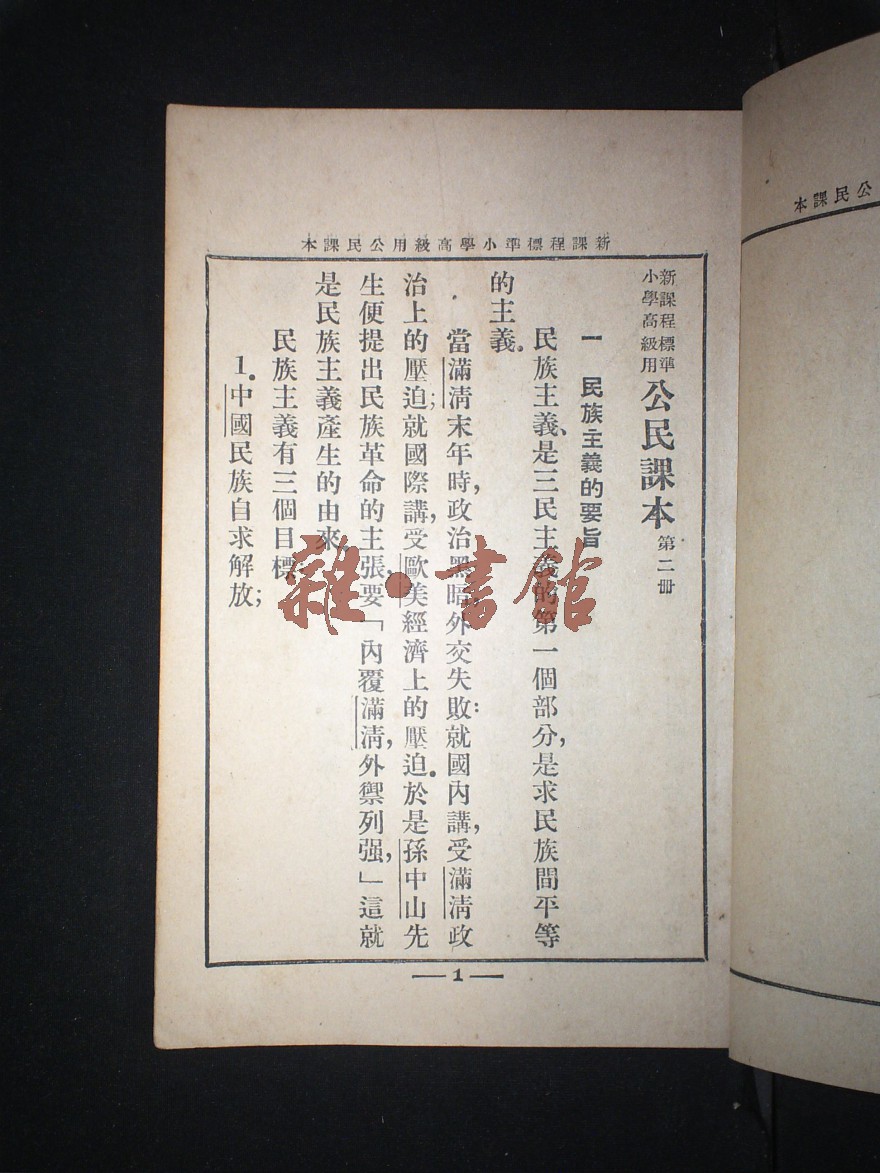 新課程標準小學高級用公民課本
新課程標準
小學高級用
公民課本 第二冊
一 民族主義的要旨
民族主義、是三民主義的第一個部分，是求民族間平等
的主義。
當滿清末年時，政治黑暗，外交失敗：就國內講，受滿清政
治上的壓迫；就國際講，受歐美經濟上的壓迫。於是孫中山先
生便提出民族革命的主張，要「內覆滿清，外禦列强，」這就
是民族主義產生的由來。
民族主義有三個目標：
1.中國民族自求解放；
—1—
公民課本
雜·書館